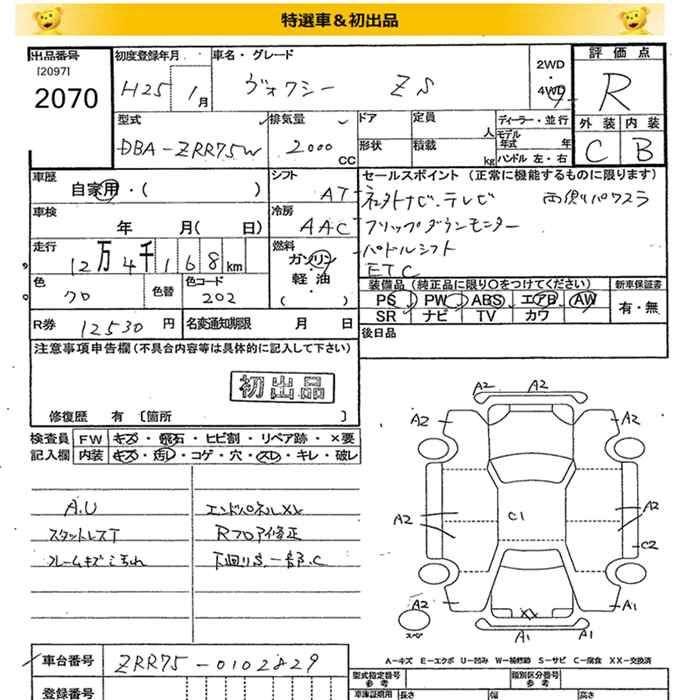 特選車&初出品
出品番号
[2097]
2070
初度登録年月
H25
1月
車名・グレード
ヴォクシー ZS
2WD
・
4WD
評価点
R
外装
C
内装
B
型式
DBA-ZRR75W
排気量
2000
CC
ドア
定員
人
形状
積載
kg
ディーラー・並行
モデル
年式
年
ハンドル 左・右
車歴
自家用・( )
シフト
AT
セールスポイント(正常に機能するものに限ります)
ナビ、テレビ
両側パワスラ
フリップダウンモニター
パドルシフト
ETC
車検
年 月( 日)
冷房
AAC
走行
12万4千168km
燃料
ガソリン
・
軽油
色
クロ
色替
色コード
202
R券
12530円
名変通知期限 月 日
装備品(純正品に限り○をつけてください)
PS PW ABS エアB AW
SR ナビ TV カワ
新車保証書
有・無
後日品
注意事項申告欄(不具合内容等は具体的に記入して下さい)
初出品
修復歴 有 [箇所 ]
検査員
記入欄
FW キズ・飛石・ヒビ割・リペア跡・×要
内装 キズ・汚レ・コゲ・穴・スレ・キレ・破レ
A.U
スタットレスT
フレームキズこすれ
エンドパネルXX
Rフロア修正
下回りS、一部、C
A2
A2
A2
A2
A2
A2
C1
C2
A2
A1
XX
A1
A1
スペア
車台番号
ZRR75-0102829
登録番号
A-キズ E-エクボ U-凹み W-補修跡 S-サビ C-腐食 XX-交換済
型式指定番号
参考
類別区分番号
参考
車庫証明用
長さ
幅
高さ